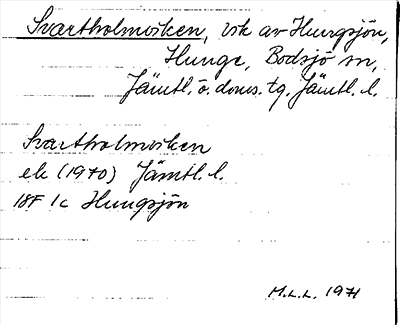 Svartholmviken, vik av Hungsjön,
Hunge, Bodsjö sn,
Jämtl. ö. doms. tg, Jämtl. l.
Svartholmviken
ek (1970) Jämtl. l.
18F 1c Hungsjön
M.L.L. 1971